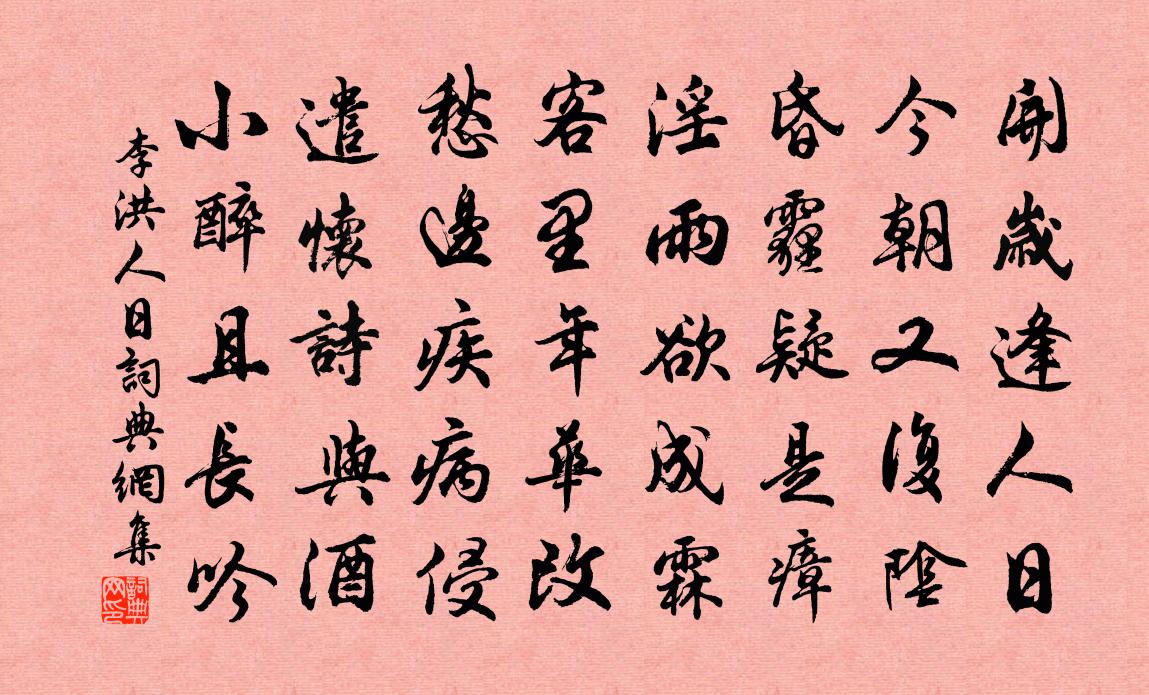 開歲逢人日
今朝又復陰
昏霾疑是瘴
淫雨欲成霖
客里年華改
愁邊疾病侵
遣懷詩與酒
小醉且長吟
李洪人日詞典網集
詞典网印